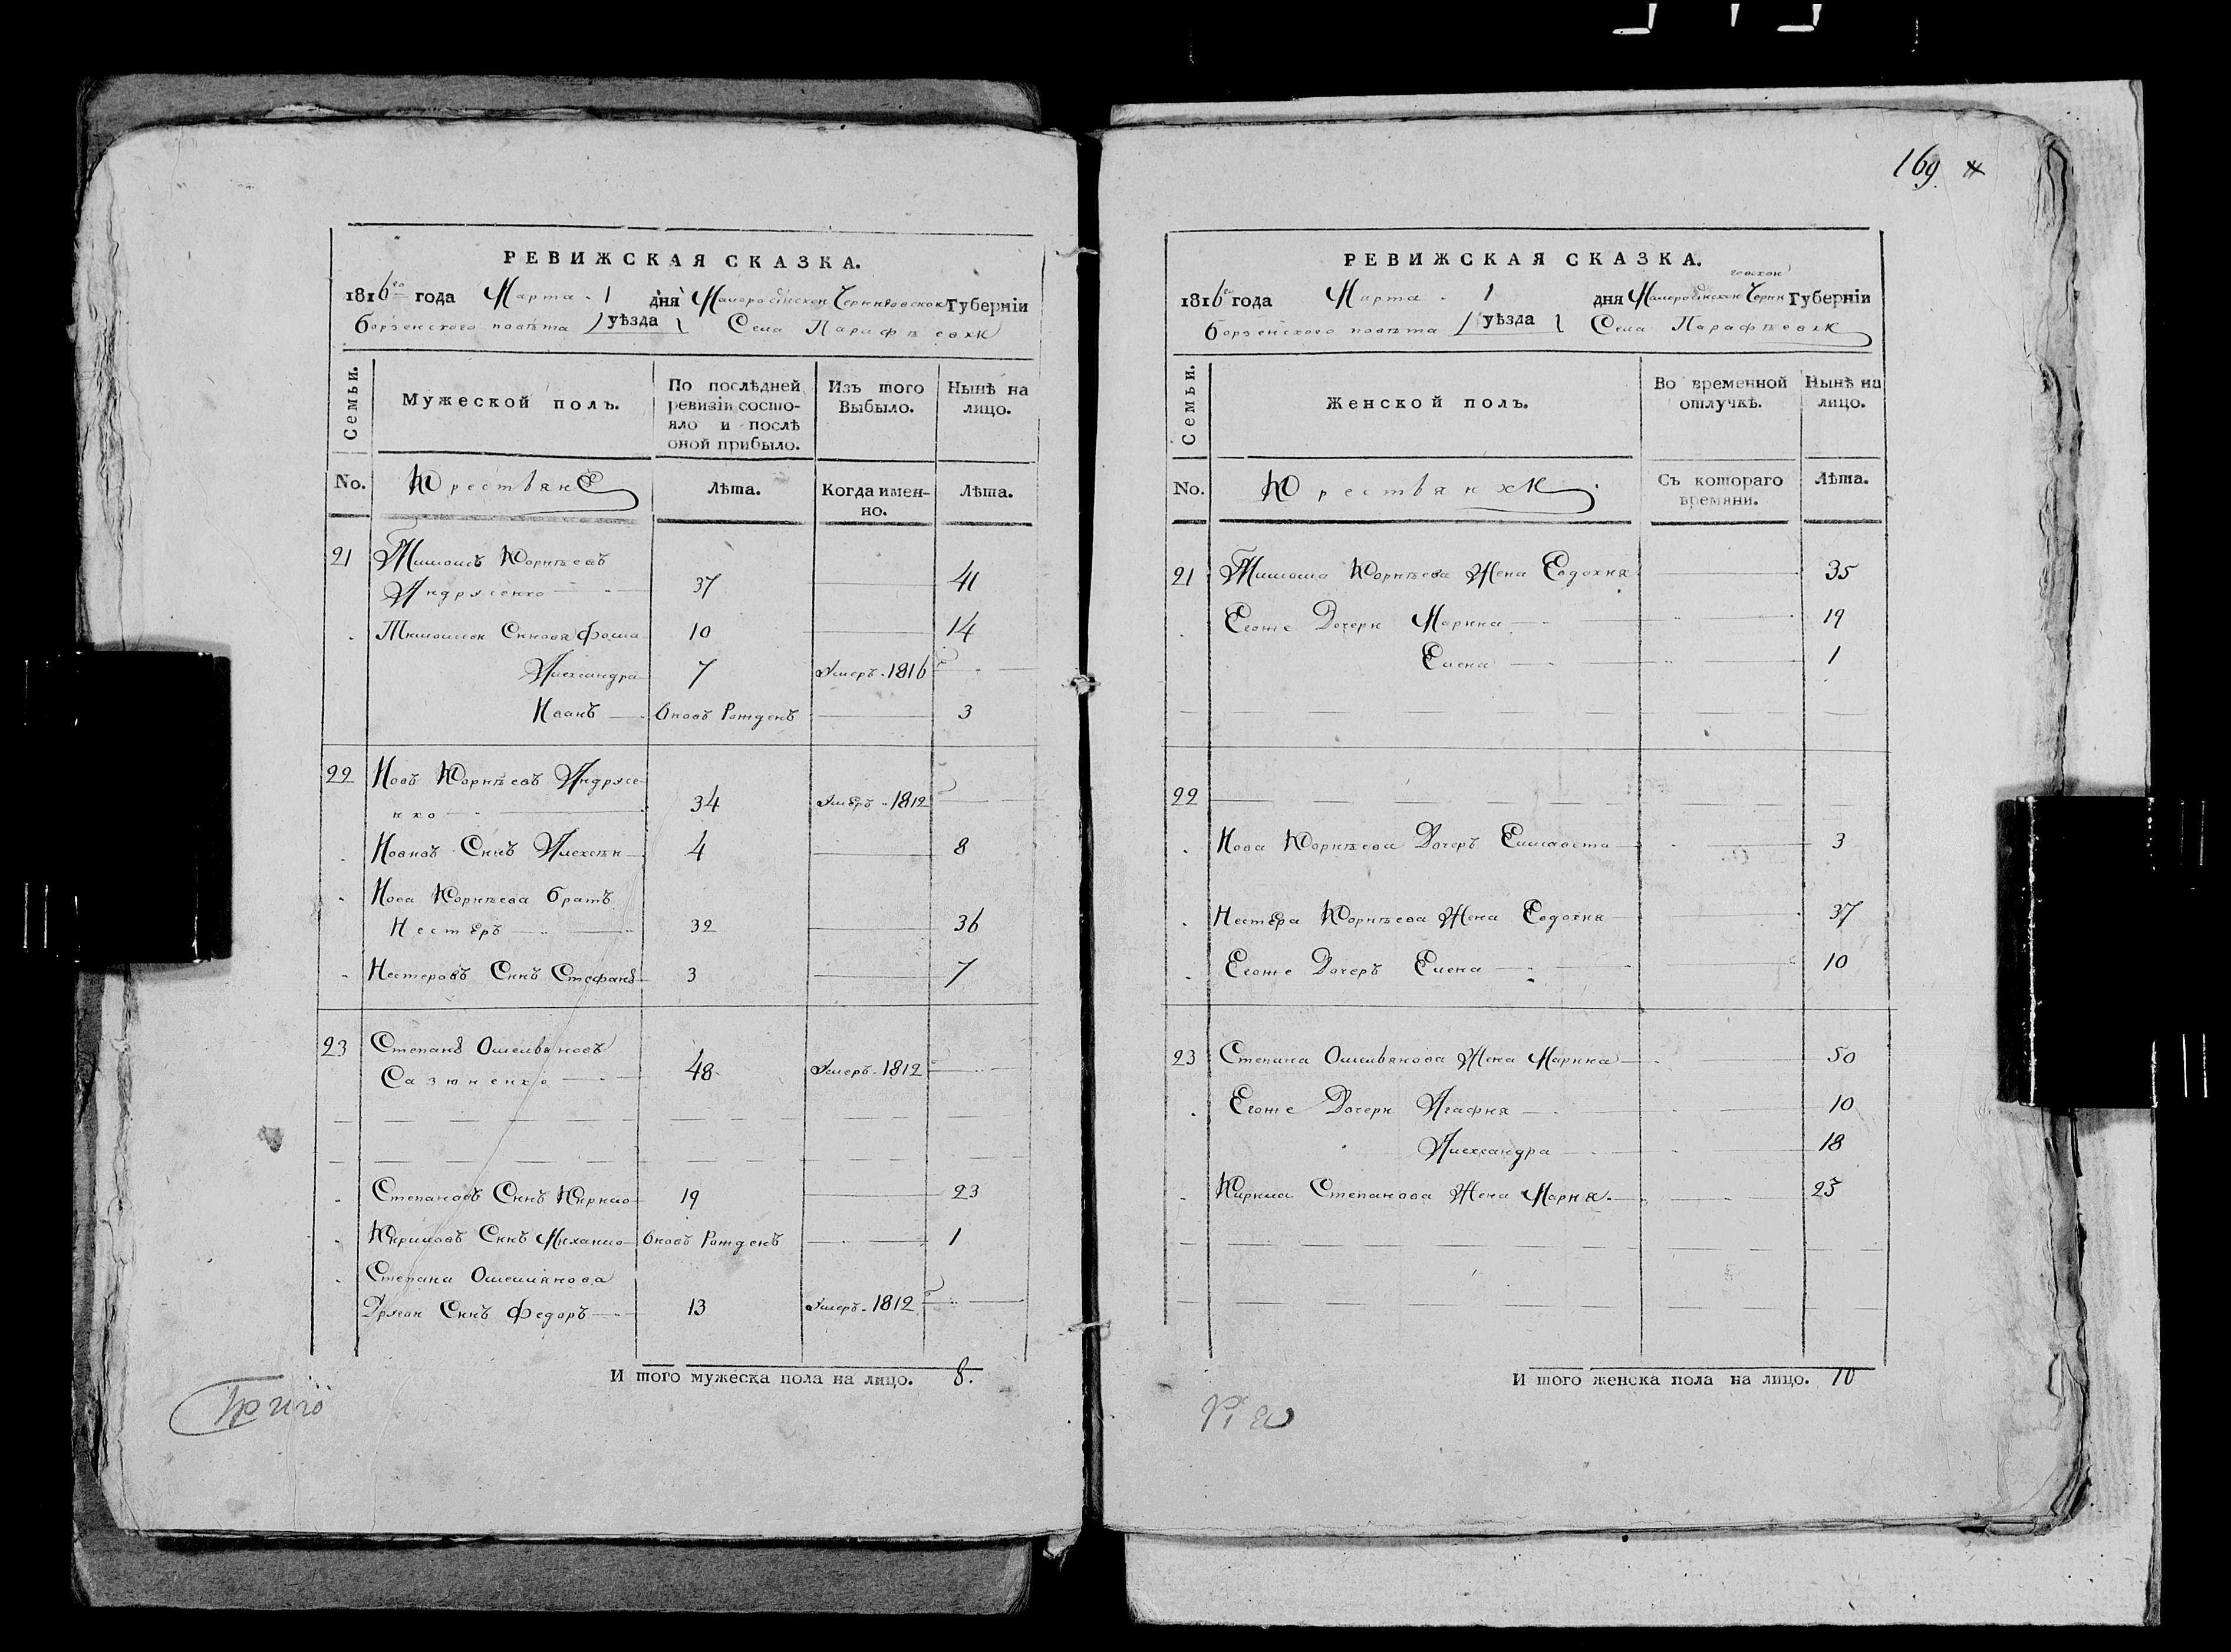 169
РЕВИЖСКАЯ СКАЗКА.
1816го года Марта 1 дня Малоросійской Черниговской Губерніи
борзенского повѣта уѣзда Села Парафѣевки
Семьи.
Мужеской полъ.
По послѣдней ревизіи состо-
яло и послѣ
оной прибыло.
Изъ того
Выбыло.
Нынѣ на
лицо.
No.
Крестьяне
Лѣта.
Когда имен-
но.
Лѣта.
21 Тимошъ Корнѣевъ
Андрусенко 37 41
Тимошеви Синовя Фома 10 14
Александра 7 Умеръ 1816
Иванъ вновъ Рожденъ 3
22 Иовъ Корнѣевъ Андрусе-
нко 34 Умеръ 1812
Иовновъ Синъ Алексѣй 4 8
Иова Корнѣева братъ
Нестеръ 32 36
Нестеровъ Синъ Стефанъ 3 7
23 Степанъ Омельяновъ
Сазоненко 48 Умеръ 1812
Степановъ Синъ Кирило 19 23
Кириловъ Синъ Михаило вновъ Рожденъ 1
Степана Омелянова
Другой Синъ Федоръ 13 Умеръ 1812
И того мужеска пола на лицо. 8.
РЕВИЖСКАЯ СКАЗКА.
говской
1816го года Марта 1 дня Малоросійской Черни Губерніи
борзенского повѣта уѣзда Села Парафѣевки
Семьи.
Женской полъ.
Во временной
отлучкѣ.
Нынѣ на
лицо.
No.
Крестьянки
Съ котораго
времяни.
Лѣта.
21 Тимоша Корнѣева Жена Евдокия 35
Егоже Дочери Марина 19
Елена 1
22
Иова Корнѣева Дочеръ Елисавета 3
Нестера Корнѣева Жена Евдокия 37
Егоже Дочеръ Елена 10
23 Степана Омельянова Жена Марина 50
Егоже Дочери Агафия 10
Александра 18
Кирила Степанова Жена Мария 25
И того женска пола на лицо. 10